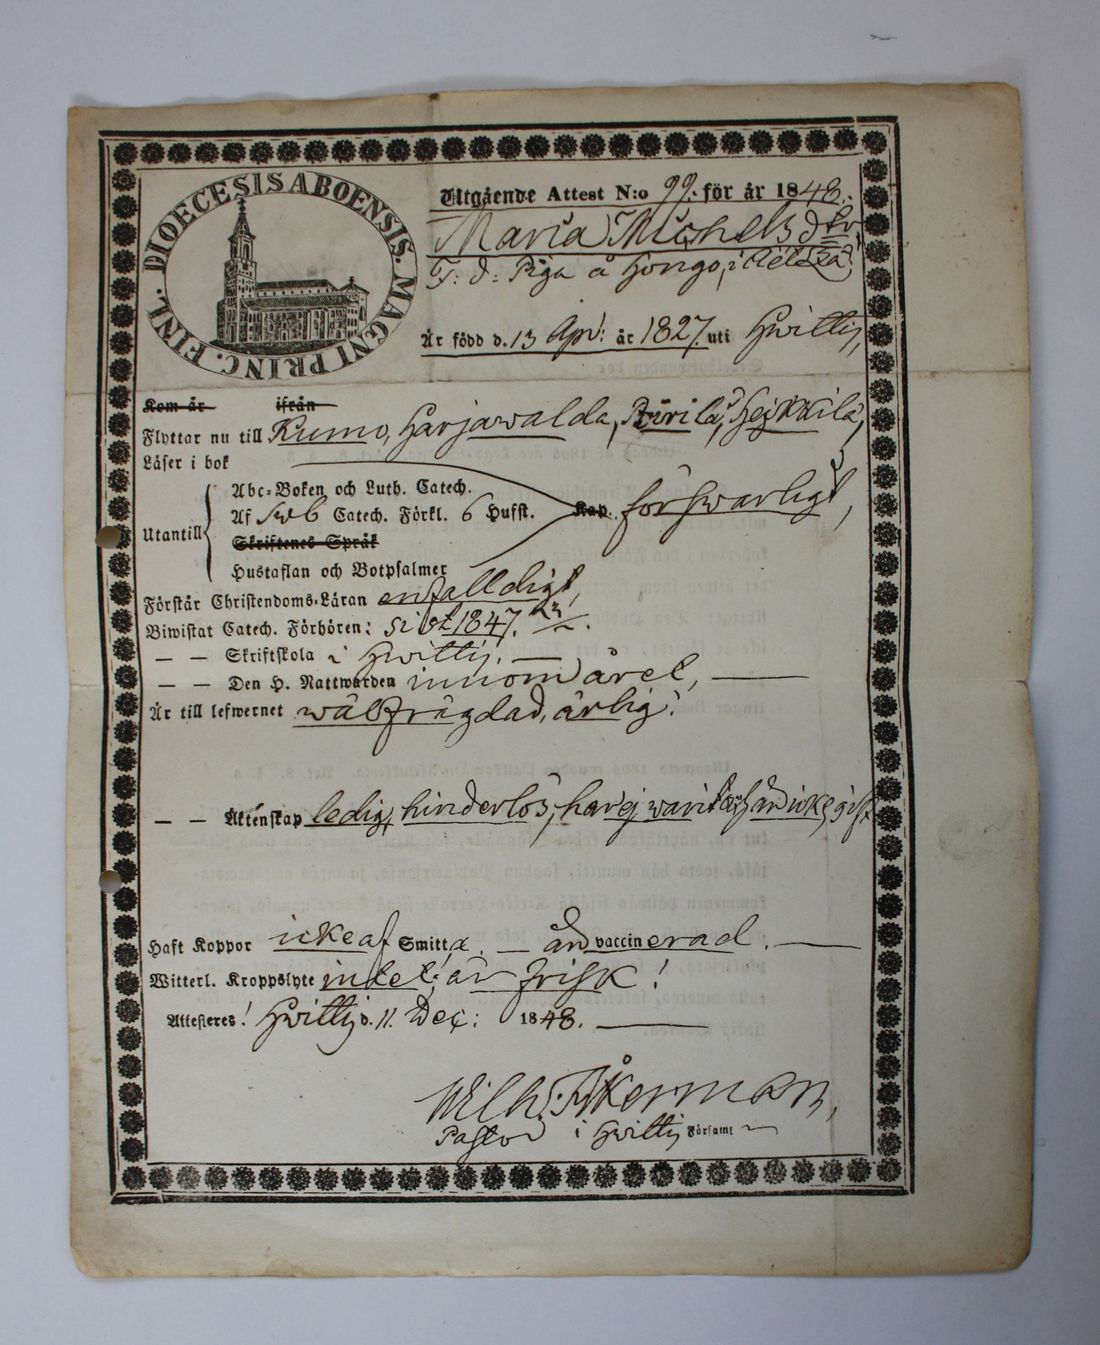 DIOECESIS ABOENSIS. MAGNI PRINC. FINL.
Utgående Attest N:o 99. för år 1848.
Maria Michelsdtr
F. d. Piga å Hongo, i
Är född d. 13 Apr: år 1827. uti Hvittis,
Kom år ifrån
Flyttar nu till Kumo, Harjawalda, Pirilä, Heikkilä,
Läser i bok
Abc-Boken och Luth. Catech.
Utantill Af Sveb Catech. Förkl. 6 Hufst. Kap. förswarligt,
Skriftenes Språk
Hustaflan och Botpsalmer
Förstår Christendoms-Läran enfalldigt,
Biwistat Catech. Förhören: sist 1847.
— — Skriftskola i Hvittis. —
— — Den H. Nattwarden innom året, —
Är till lefwernet wälfrägdad, ärlig;
— — Äktenskap ledig, hinderlös, har ej warit och än icke gift
Haft Koppor icke af Smitta — än vaccinerad. —
Witterl. Kroppslyte intet; är frisk!
Attesteres! Hvittis d. 11. Dec: 1848. —
Wilh. Åkerman,
Pastor i Hvittis Församl